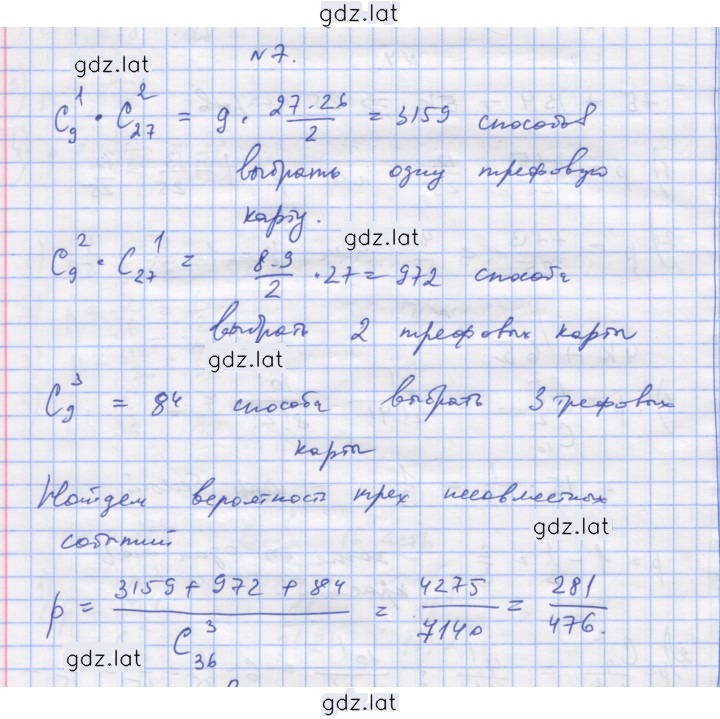 gdz.lat
gdz.lat
N 7.
C₉¹ · C₂₇² = 9 · (27·26)/2 = 3159 способов
выбрать одну трефовую
карту.
gdz.lat
C₉² · C₂₇¹ = (8·9)/2 · 27 = 972 способа
выбрать 2 трефовых карты
gdz.lat
C₉³ = 84 способа выбрать 3 трефовых
карты
Найдем вероятность трех несовместных
gdz.lat
событий
p = (3159 + 972 + 84)/C₃₆³ = 4275/7140 = 281/476.
gdz.lat
gdz.lat